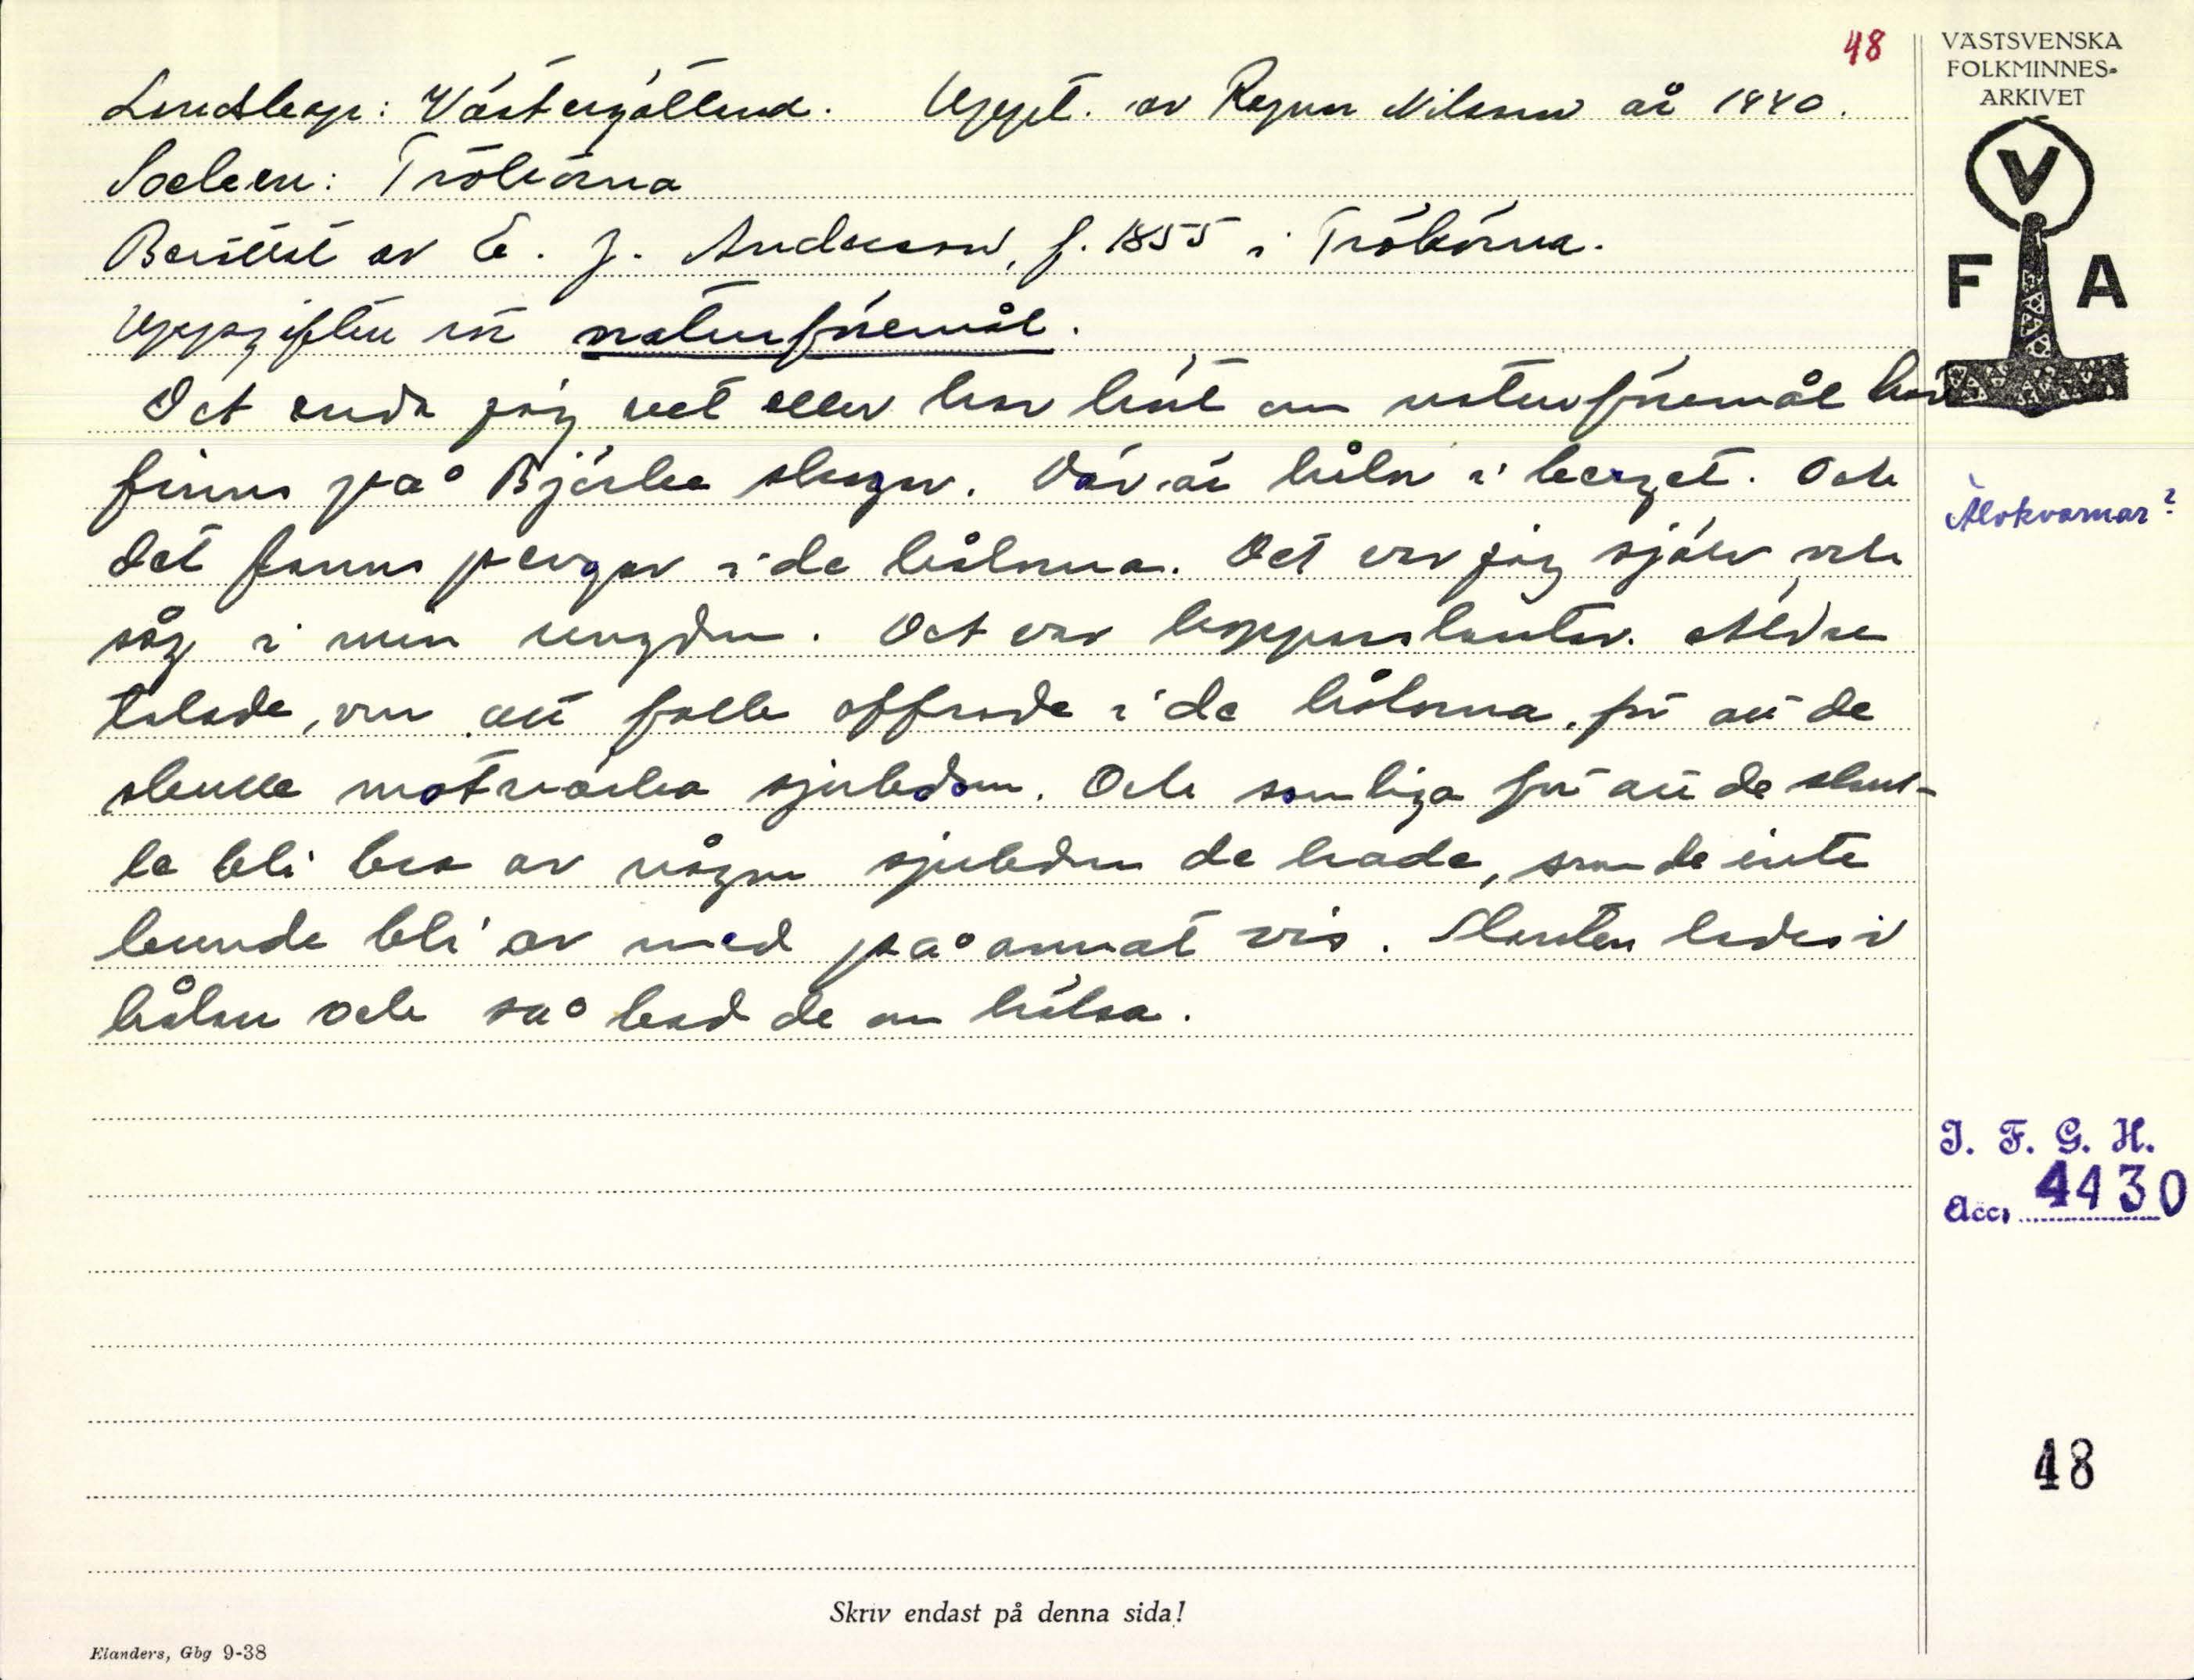 48
VÄSTSVENSKA
FOLKMINNES-
ARKIVET
V
F A
Landskap: Västergötland. Uppt. av Ragnar Nilsson år 1940.
Socken: Trökörna
Berättat av E. J. Andersson, f. 1855 i Trökörna.
Uppgiften rör naturföremål.
Det enda jag vet eller har hört om naturföremål här
finns på Bjärke skogar. Där är hålor i berget. Och
det fanns pengar i de hålorna. Det var jag själv och
såg i min ungdom. Det var kopparslantar. Äldre
talade om att folk offrade i de hålorna, för att de
skulle motverka sjukdom. Och somliga för att de skul-
le bli bra av någon sjukdom de hade, som de inte
kunde bli av med på annat vis. Slanten lades i
hålan och så bad de om hälsa.
Älvkvarnar?
I. F. G. H.
Acc. 4430
48
Skriv endast på denna sida!
Elanders, Gbg 9-38